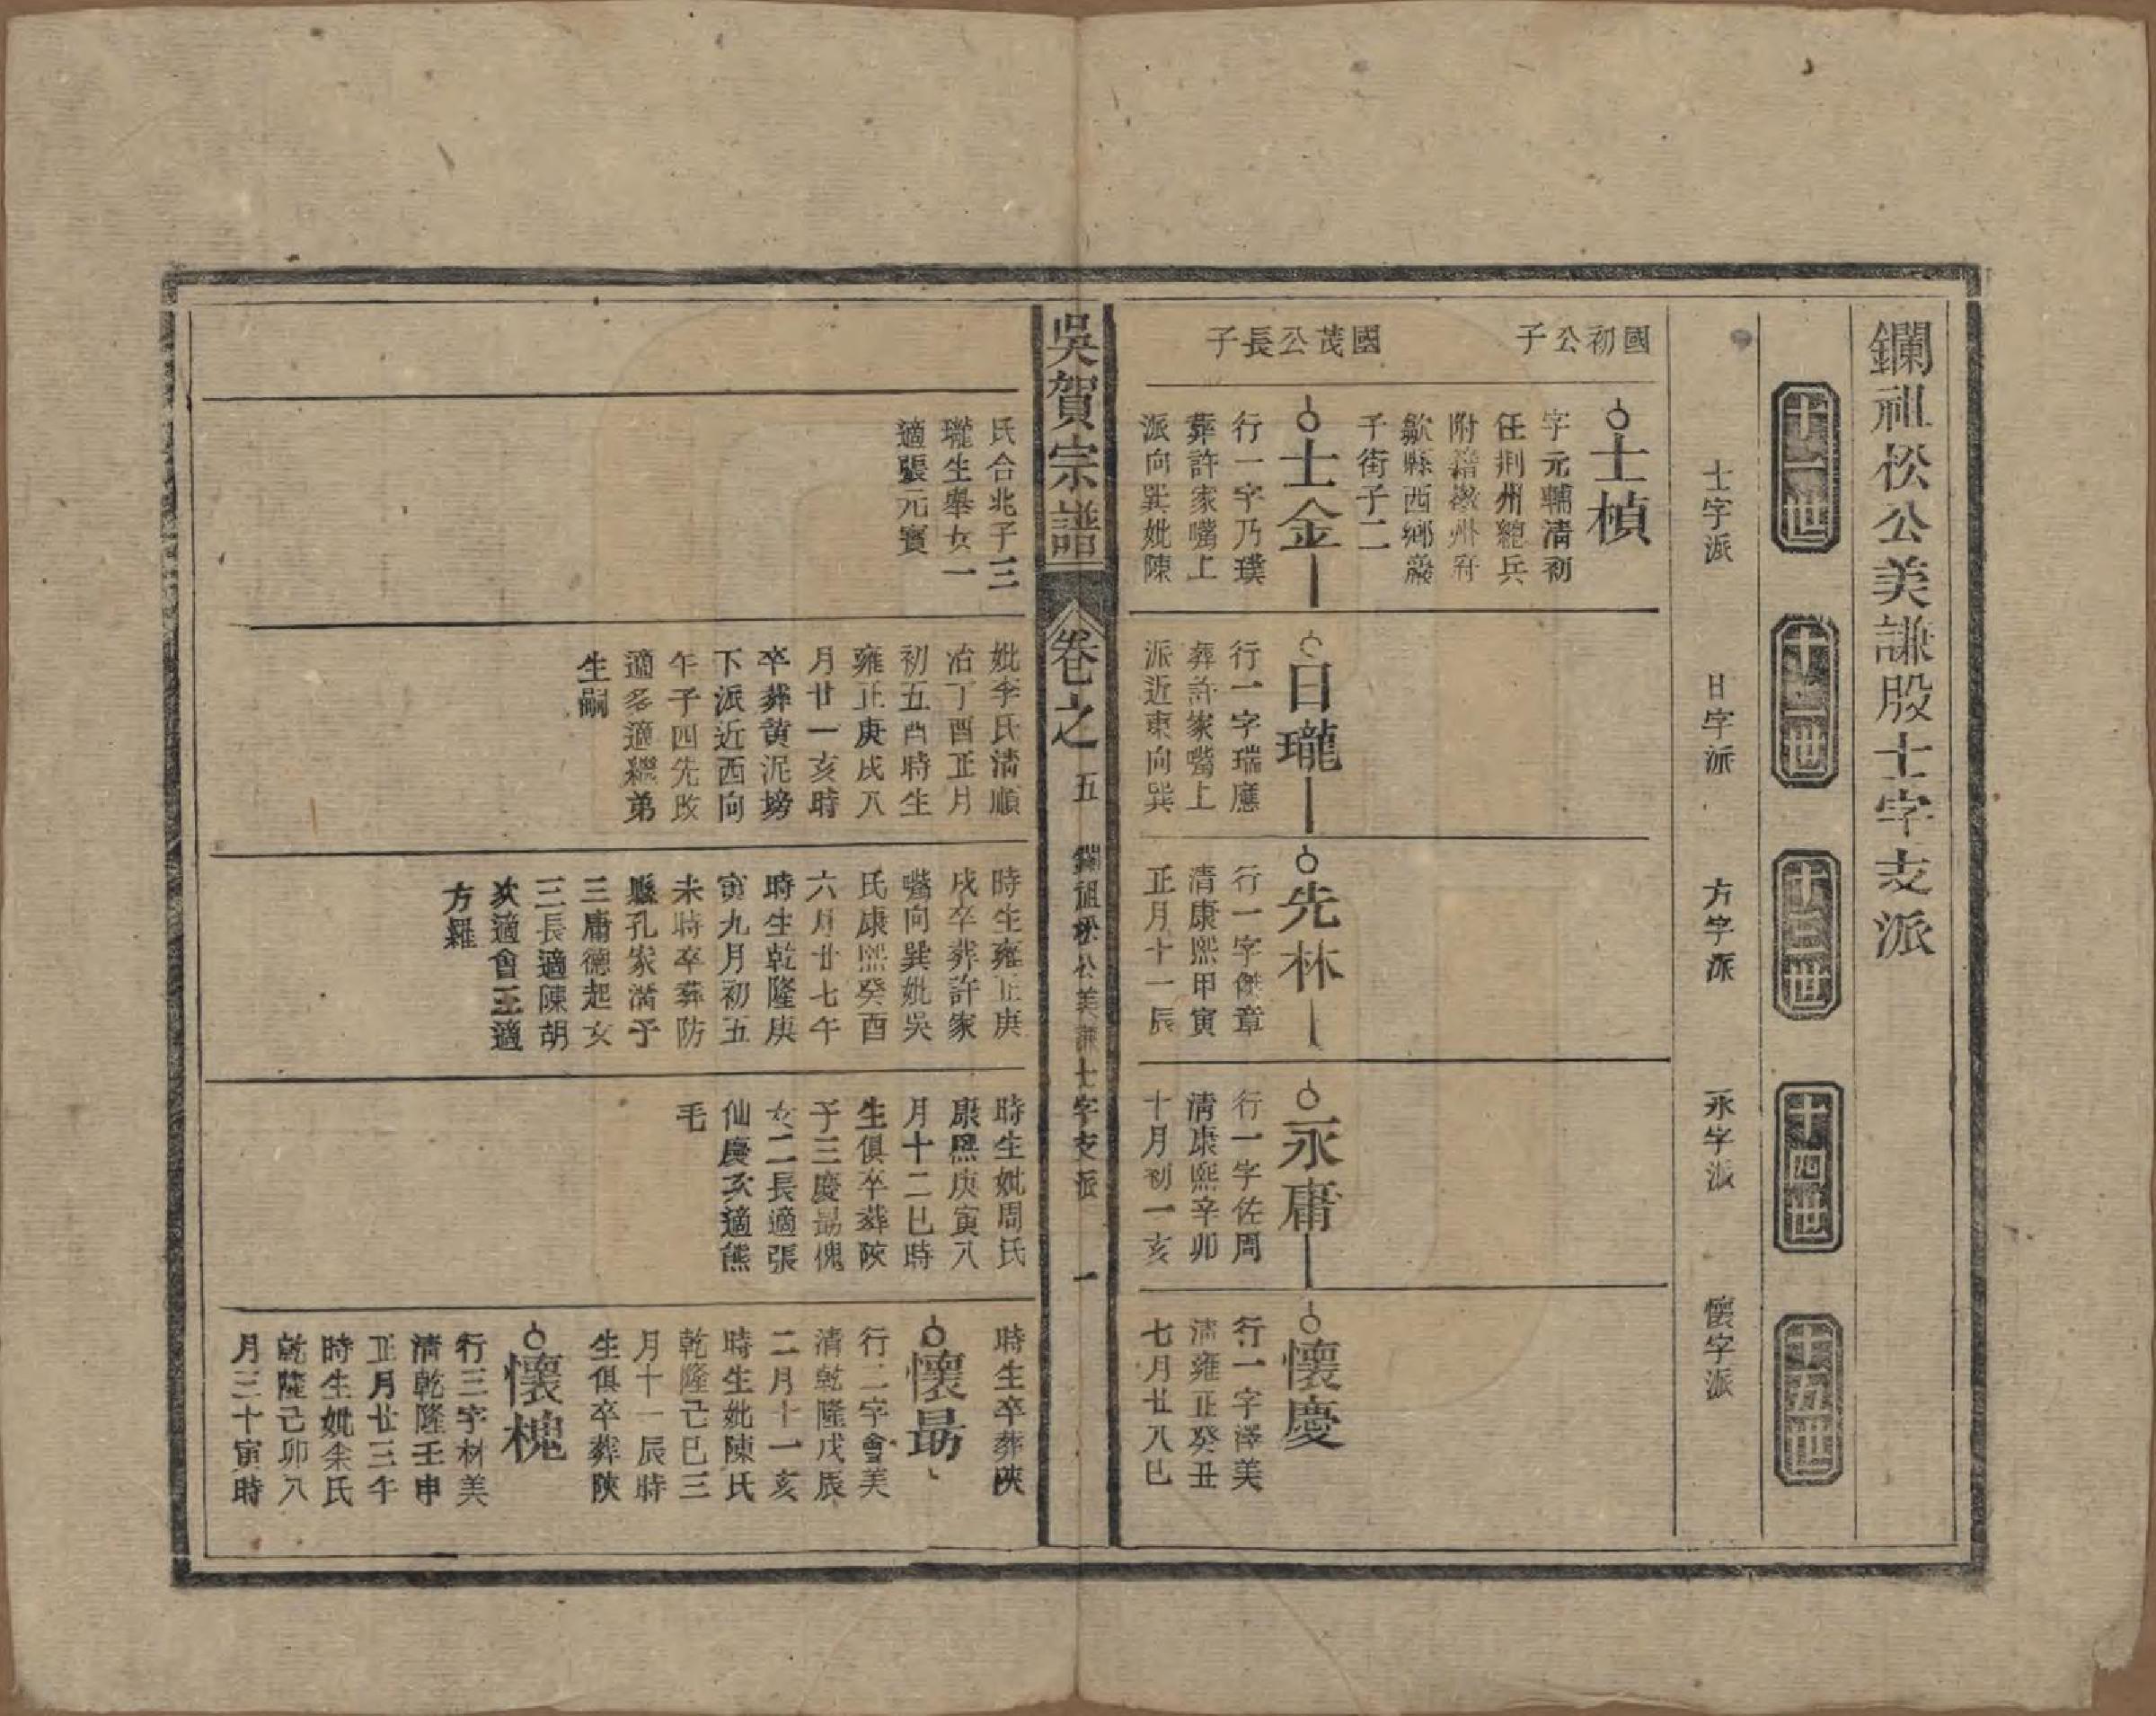 鑭祖松公美謙股士字支派
十一世
十二世
十三世
十四世
十五世
士字派
日字派
方字派
永字派
懷字派
國初公子
士楨
字元輔清初
任荆州總兵
附籍徽州府
歙縣西鄉巖
子街子二
國茂公長子
士金
行一字乃璞
葬許家嘴上
派向巽妣陳
日瓏
行一字瑞應
葬許家嘴上
派近東向巽
先林
行一字傑章
清康熙甲寅
正月十一辰
永庸
行一字佐周
清康熙辛卯
十月初一亥
懷慶
行一字澤美
清雍正癸丑
七月廿八巳
吳賀宗譜
卷之五
鑭祖松公美謙士字支派
一
氏合兆子三
瓏生舉女一
適張元寳
妣李氏清順
治丁酉正月
初五酉時生
雍正庚戌八
月廿一亥時
卒葬黄泥塝
下派近西向
午子四先改
適多適繼弟
生嗣
時生雍正庚
戌卒葬許家
嘴向巽妣吳
氏康熙癸酉
六月廿七午
時生乾隆庚
寅九月初五
未時卒葬防
縣孔家溝子
三庸德起女
三長適陳胡
次適會王適
方羅
時生妣周氏
康熙庚寅八
月十二巳時
生俱卒葬陜
子三慶勗傀
女二長適張
仙慶次適熊
毛
時生卒葬陜
懷勗
行二字會美
清乾隆戊辰
二月十一亥
時生妣陳氏
乾隆己巳三
月十一辰時
生俱卒葬陜
懷槐
行三字材美
清乾隆壬申
正月廿三午
時生妣余氏
乾隆己卯八
月三十寅時